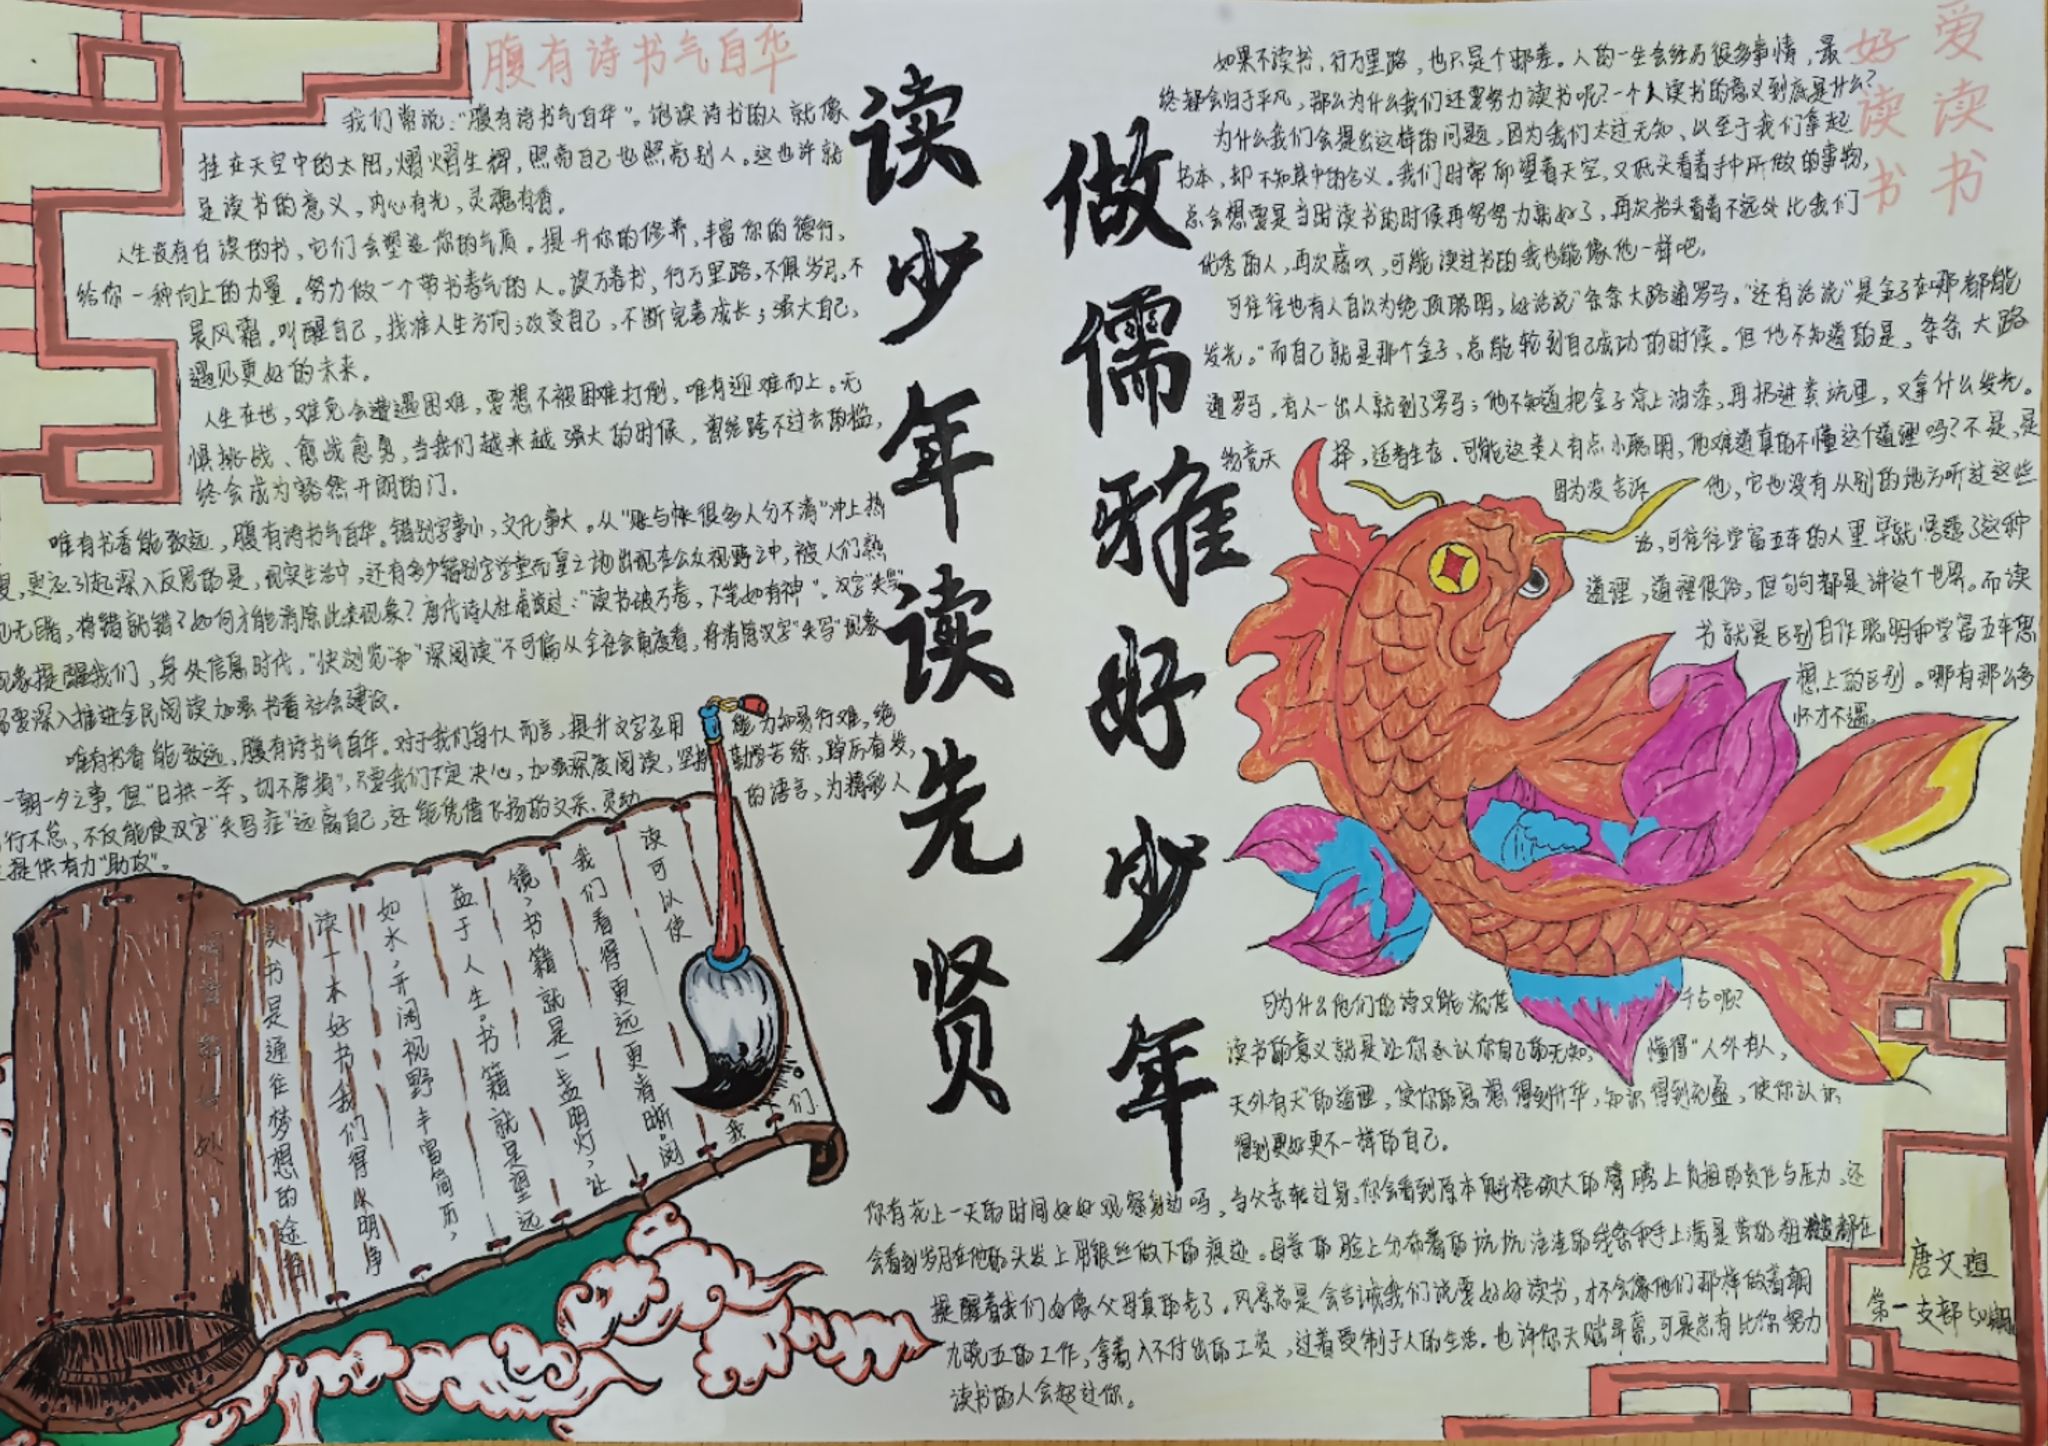 腹有诗书气自华
我们常说:"腹有诗书气自华"。饱读诗书的人就像
挂在天空中的太阳,熠熠生辉,照亮自己也照亮别人。这也许就
是读书的意义,内心有光,灵魂有香。
人生没有白读的书,它们会塑造你的气质。提升你的修养,丰富你的德行,
给你一种向上的力量。努力做一个带书香气的人。读万卷书,行万里路,不惧岁月,不
畏风霜。叫醒自己,找准人生方向;改变自己,不断完善成长;强大自己,
遇见更好的未来。
人生在世,难免会遭遇困难,要想不被困难打倒,唯有迎难而上。无
惧挑战、愈战愈勇,当我们越来越强大的时候,曾经跨不过去的槛,
终会成为豁然开朗的门。
唯有书香能致远,腹有诗书气自华。错别字事小,文化事大。从"账与帐很多人分不清"冲上热
更应引起深入反思的是,现实生活中,还有多少错别字堂而皇之地出现在公众视野之中,被人们熟
无睹,将错就错?如何才能消除此类现象?唐代诗人杜甫说过:"读书破万卷,下笔如有神"。汉字"失写"
现象提醒我们,身处信息时代,"快浏览"和"深阅读"不可偏从全社会角度看,将消除汉字"失写"现象
需要深入推进全民阅读加强书香社会建设。
唯有书香能致远,腹有诗书气自华。对于我们每个人而言,提升文字应用能力知易行难,绝
一朝一夕之事。但"日拱一卒,切不唐捐",只要我们下定决心,加强深度阅读,坚持勤学苦练,踔厉奋发,
行不怠,不仅能使汉字"失写症"远离自己,还能凭借飞扬的文采、灵动的语言,为精彩人
提供有力"助攻"。
读少年读先贤
做儒雅好少年
爱读书
好读书
如果不读书,行万里路,也只是个邮差。人的一生会经历很多事情,最
终都会归于平凡,那么为什么我们还要努力读书呢?一个人读书的意义到底是什么?
为什么我们会提出这样的问题,因为我们太过无知、以至于我们拿起
书本,却不知其中的含义。我们时常仰望着天空,又低头看着手中所做的事物,
总会想要是当时读书的时候再努努力就好了,再次抬头看看不远处比我们
优秀的人,再次感叹,可能读过书的我也能像他一样吧。
可往往也有人自以为绝顶聪明,好话说"条条大路通罗马。"还有话说"是金子在哪都能
发光。"而自己就是那个金子,总能轮到自己成功的时候。但他不知道的是,条条大路
通罗马,有人一出人就到了罗马;他不知道把金子涂上油漆,再扔进粪坑里,又拿什么发光。
物竞天择,适者生存,可能这类人有点小聪明,他难道真的不懂这个道理吗?不是,是
因为没告诉他,它也没有从别的地方听过这些
话,可往往学富五车的人里早就悟透了这种
道理,道理很俗,但句句都是讲这个世界。而读
书就是区别自作聪明和学富五车思
想上的区别。哪有那么多
怀才不遇。
可为什么他们的诗又能流传千古呢?
读书的意义就是让你承认你自己的无知,懂得"人外有人,
天外有天"的道理,使你的思想得到升华,知识得到充盈,使你认识
得到更好更不一样的自己。
你有花上一天的时间好好观察身边吗,当父亲转过身,你会看到原本魁梧硕大的臂膀上肩担的责任与压力,还
会看到岁月在他的头发上用银丝做下的痕迹。母亲的脸上分布着的坑坑洼洼的线条和手上满是茧的粗糙都在
提醒着我们好像父母真的老了。风景总是会告诫我们说要好好读书,才不会像他们那样做着朝
九晚五的工作,拿着入不付出的工资,过着受制于人的生活。也许你天赋异禀,可是总有比你努力
读书的人会超过你。
我们
读可以使
我们看得更远更清晰。阅
镜,书籍就是一盏明灯,让
益于人生。书籍就是望远
如水,开阔视野丰富简历,
读一本好书我们得以明净
读书是通往梦想的途径
唐文
第一支部